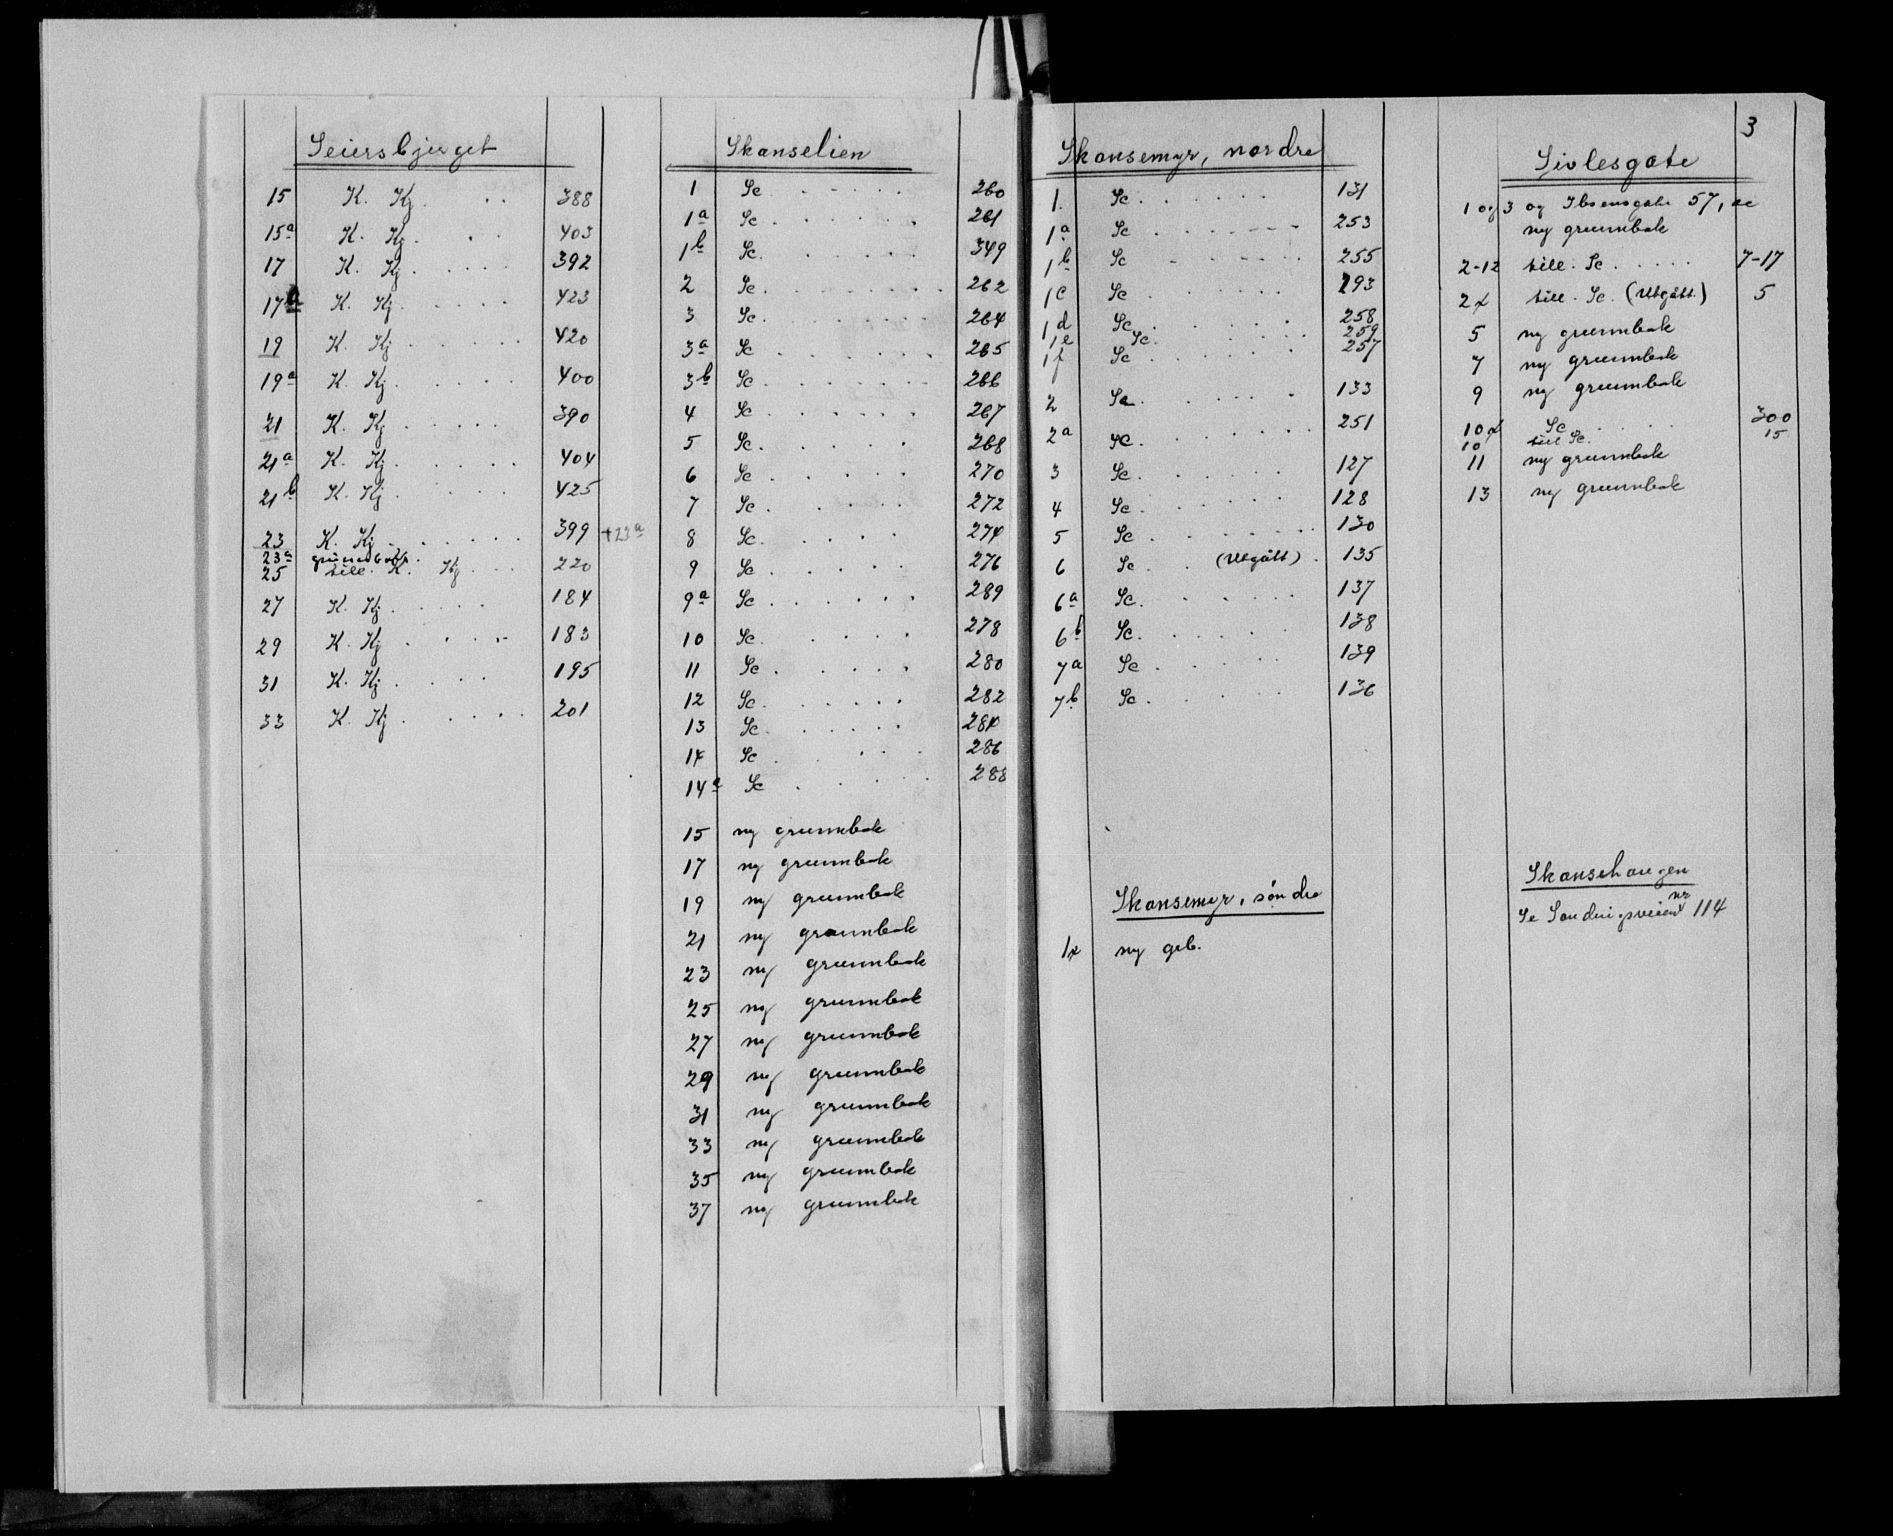 Seiersbjerget
15 K. Kj. . . 388
15a K. Kj. . . 403
17 K. Kj. . . . . 392
17a K. Kj. . . . . 423
19 K. Kj. . . . . 420
19a K. Kj. . . . . 400
21 K. Kj. . . . . 390
21a K. Kj. . . . . 404
21b K. Kj. . . . . 425
23 K. Kj. . . . . 399 +23a
23a grundbok
25 till. K. Kj. . . 220
27 K. Kj. . . . . 184
29 K. Kj. . . . . 183
31 K. Kj. . . . . 195
33 K. Kj. . . . . 201
Skanselien
1 Sc . . . . . 260
1a Sc . . . . . 261
1b Sc. . . . . 349
2 Sc. . . . . . 262
3 Sc. . . . . . 264
3a Sc . . . . . 265
3b Sc . . . . . 266
4 Sc . . . . . 267
5 Sc. . . . . 268
6 Sc . . . . . 270
7 Sc . . . . . 272
8 Sc. . . . . 274
9 Sc . . . . . 276
9a Sc . . . . . 289
10 Sc. . . . . 278
11 Sc . . . . . 280
12 Sc. . . . . . 282
13 Sc. . . . . . 284
14 Sc . . . . 286
14a Sc . . . . 288
15 ny grunnbok
17 ny grunnbok
19 ny grunnbok
21 ny grunnbok
23 ny grunnbok
25 ny grunnbok
27 ny grunnbok
29 ny grunnbok
31 ny grunnbok
33 ny grunnbok
35 ny grunnbok
37 ny grunnbok
Skansemyr, nordre
1. Sc. . . . . . 131
1a Sc . . . . . 253
1b Sc . . . . . 255
1c Sc . . . . . 293
1d Sc . . . . . 258
1e Sc. . . . . 259
1f Sc . . . . . 257
2 Sc. . . . . 133
2a Sc. . . . . 251
3 Sc. . . . . 127
4 Sc. . . . . 128
5 Sc . . . . . 130
6 Sc . . (Utgått) . 135
6a Sc. . . . . 137
6b Sc. . . . . 138
7a Sc . . . . . 139
7b Sc . . . . 136
Skansemyr, søndre
1x ny grb.
3
Sivlesgate
1 og 3 og Ibsensgate 57, se
ny grunnbok
2-12 till. Sc . . . . . 7-17
2x till. Sc. (Utgått.) 5
5 ny grunnbok
7 ny grunnbok
9 ny grunnbok
10x Sc . . . . . 300
10 till Sc. 15
11 ny grunnbok
13 ny grunnbok
Skansehaugen
Se Sandviksveien nr 114